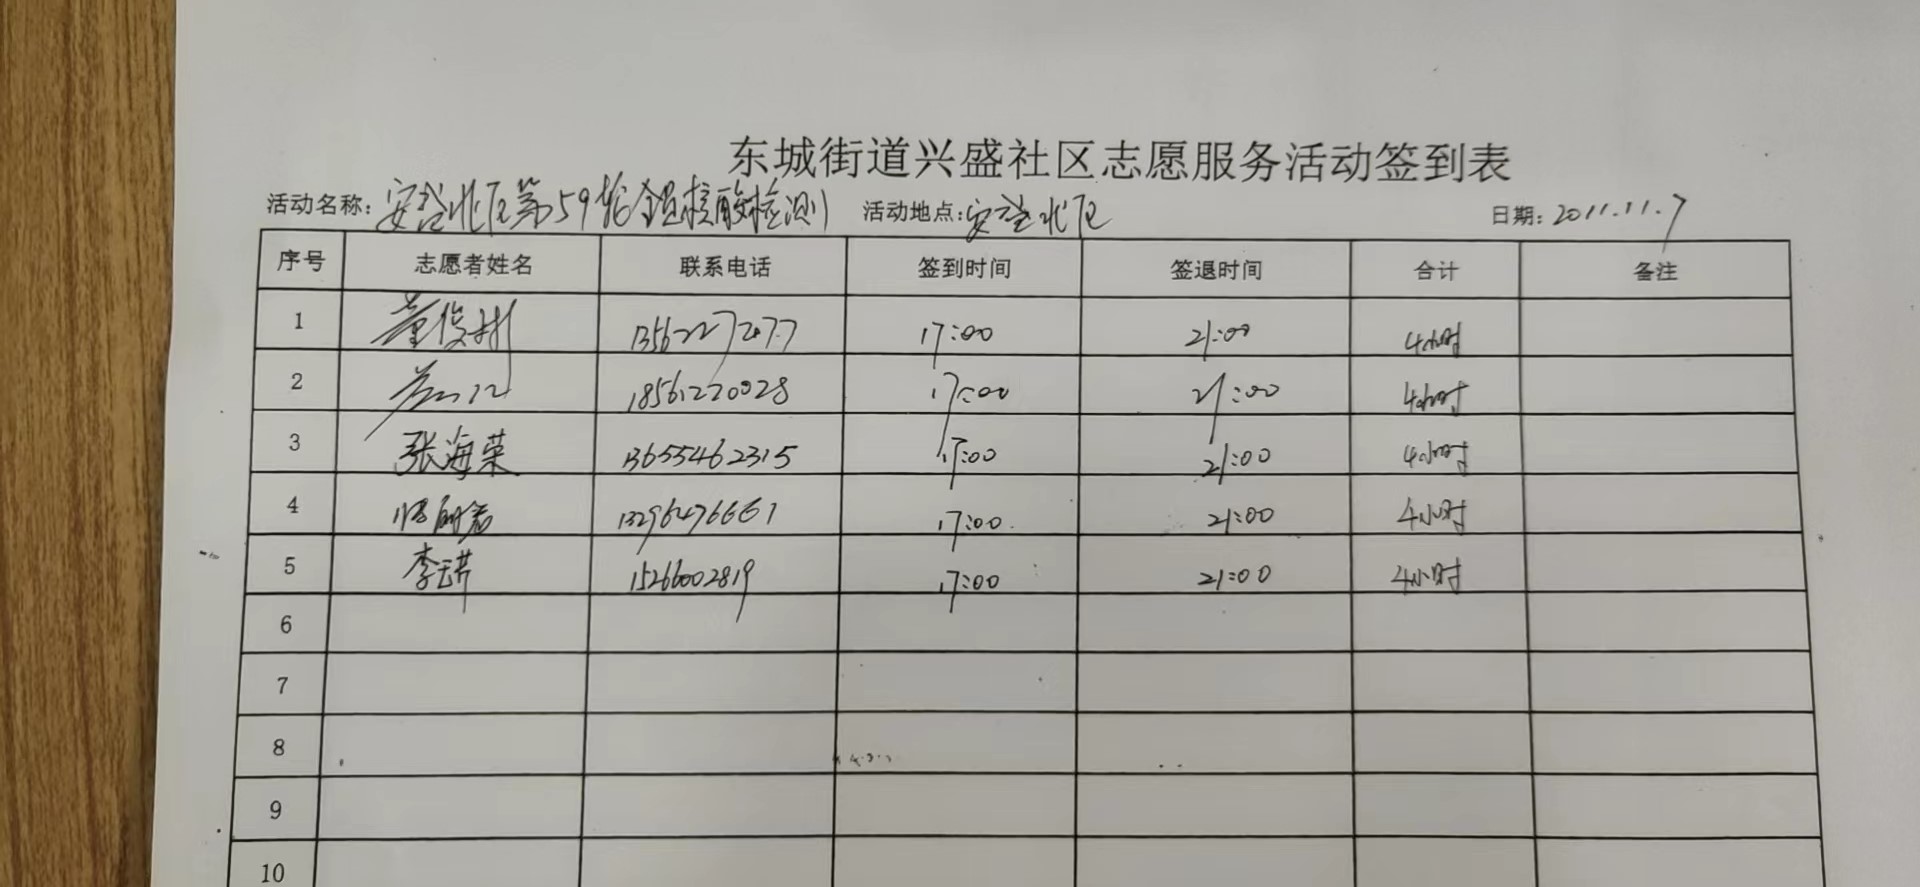 东城街道兴盛社区志愿服务活动签到表
活动名称：安盛北区第59轮全员核酸检测 活动地点：安盛北区 日期：2011.11.7
序号 志愿者姓名 联系电话 签到时间 签退时间 合计 备注
1 董俊彬 17:00 21:00 4小时
2 18561220028 17:00 21:00 4小时
3 张海荣 13655462315 17:00 21:00 4小时
4 17:00 21:00 4小时
5 15266002819 17:00 21:00 4小时
6
7
8
9
10